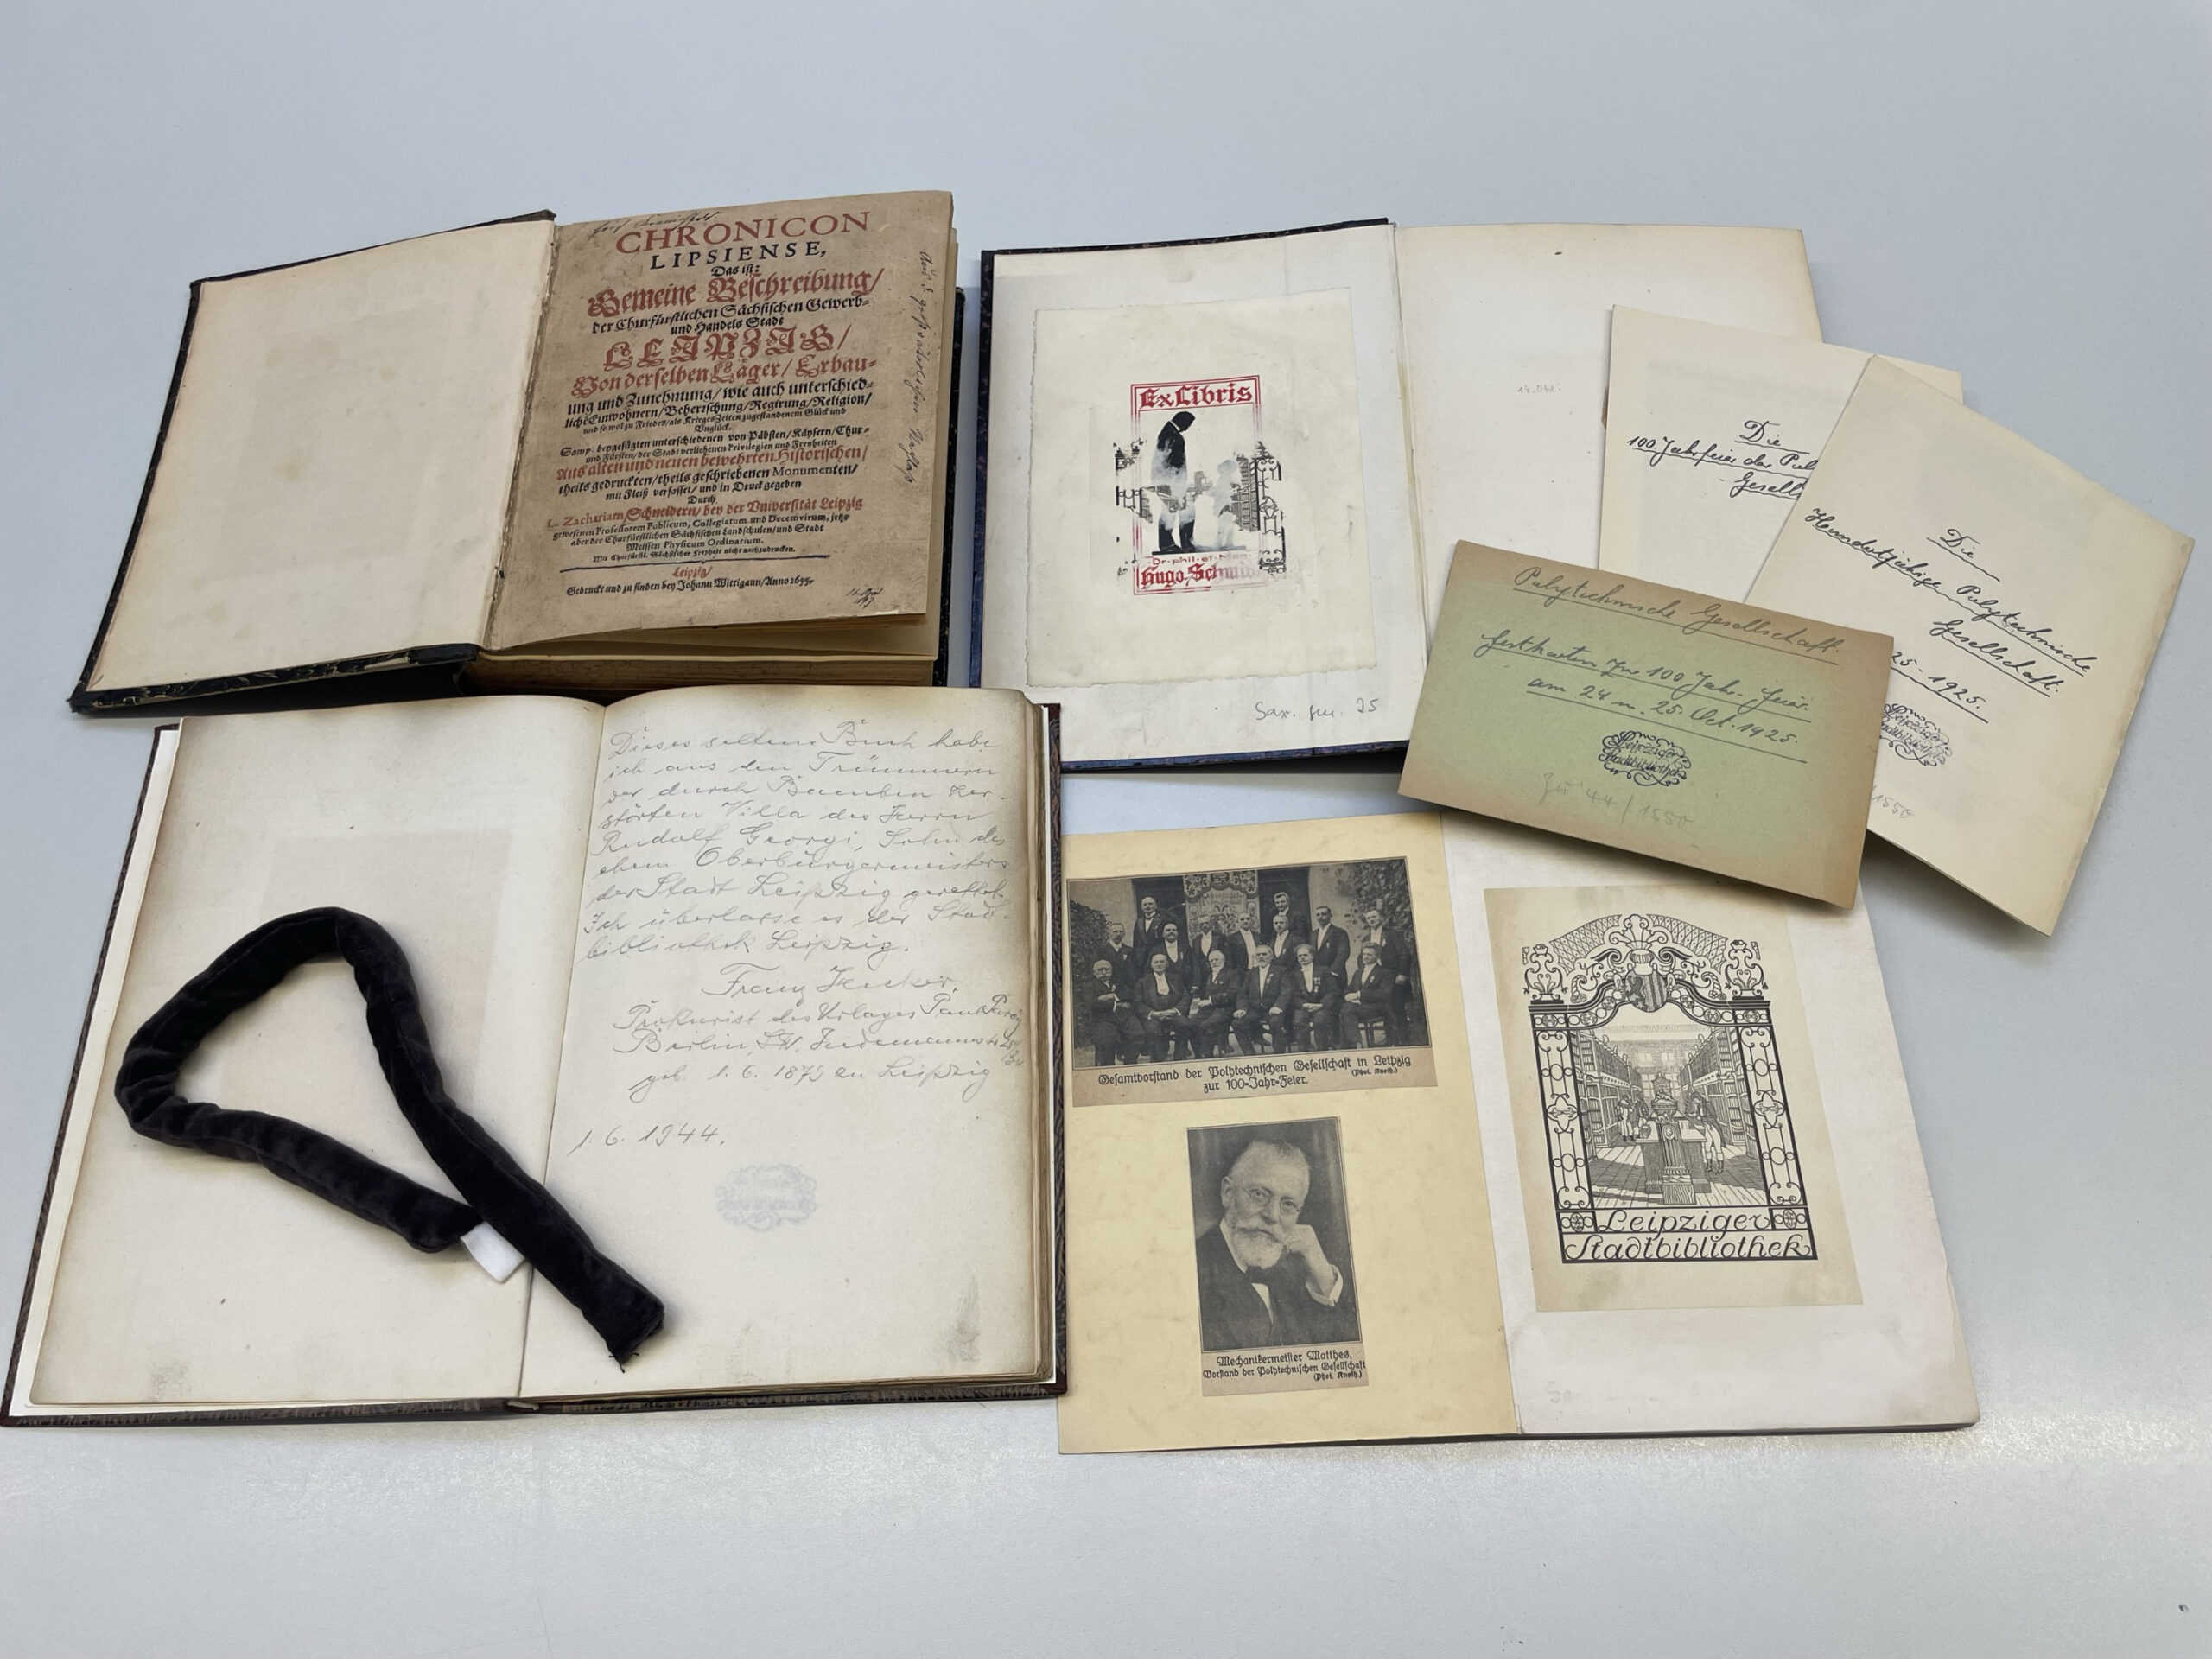 CHRONICON
LIPSIENSE,
Das ist:
Gemeine Beschreibung/
der Churfürstlichen Sächsischen Gewerb-
und Handels Stadt
LEIPZIG/
Von derselben Läger/ Erbau-
ung und Zunehmung/ wie auch unterschied-
liche Einwohnern/ Beherrschung/ Regirung/ Religion/
und so wol zu Frieden/ als Krieges Zeiten zugestandenem Glück und
Unglück.
Sampt beygefügten unterschiedenen von Päbsten/ Käysern/ Chur-
und Fürsten/ der Stadt verliehenen Privilegien und Freyheiten
Aus alten und neuen bewehrten Historischen/
theils gedruckten/ theils geschriebenen Monumenten/
mit Fleiß verfasset/ und in Druck gegeben
Durch
L. Zachariam Schneidern/ bey der Universität Leipzig
gewesenen Professorem Publicum, Collegiatum und Decemvirum, jetzo
aber der Churfürstlichen Sächsischen Landschulen/ und Stadt
Meissen Physicum Ordinarium.
Mit Churfürstl. Sächsischer Freyheit nicht nachzudrucken.
Leipzig/
Gedruckt und zu finden bey Johann Wittigaun/ Anno 1655.
Ex Libris
Dr. phil. et
Hugo
Sax. 25
Die
100 Jahrfeier der Pol
Gesell
Die
Hundertjährige Polytechnische
Gesellschaft.
25 - 1925.
Leipziger
Stadtbibliothek
1550
Polytechnische Gesellschaft.
Festkarten zur 100 Jahr-Feier
am 24 u. 25. Oct. 1925.
Leipziger
Stadtbibliothek
zu 44/1550
Dieses seltene Buch habe
ich aus den Trümmern
der durch Bomben zer-
störten Villa des Herrn
Rudolf Georgi, Sohn des
ehem Oberbürgermeisters
der Stadt Leipzig gerettet.
Ich überlasse es der Stad-
bibliothek Leipzig.
Franz
Prokurist des Verlages Paul
Berlin
geb. 1. 6. 1875 in Leipzig
1. 6. 1944.
Gesamtvorstand der Polytechnischen Gesellschaft in Leipzig
zur 100-Jahr-Feier.
(Phot.
Mechanikermeister Matthes,
Vorstand der Polytechnischen Gesellschaft
(Phot.
Leipziger
Stadtbibliothek